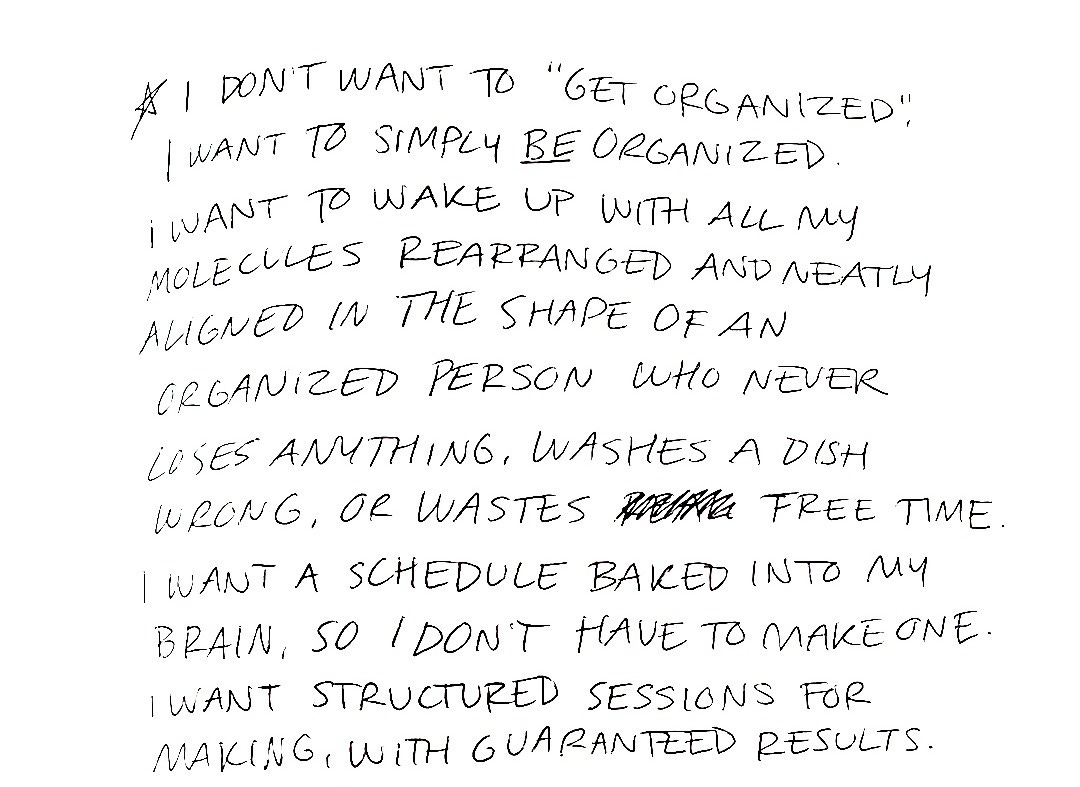 ☆ I DON'T WANT TO "GET ORGANIZED".
I WANT TO SIMPLY BE ORGANIZED.
I WANT TO WAKE UP WITH ALL MY
MOLECULES REARRANGED AND NEATLY
ALIGNED IN THE SHAPE OF AN
ORGANIZED PERSON WHO NEVER
LOSES ANYTHING, WASHES A DISH
WRONG, OR WASTES FREE TIME.
I WANT A SCHEDULE BAKED INTO MY
BRAIN, SO I DON'T HAVE TO MAKE ONE.
I WANT STRUCTURED SESSIONS FOR
MAKING, WITH GUARANTEED RESULTS.